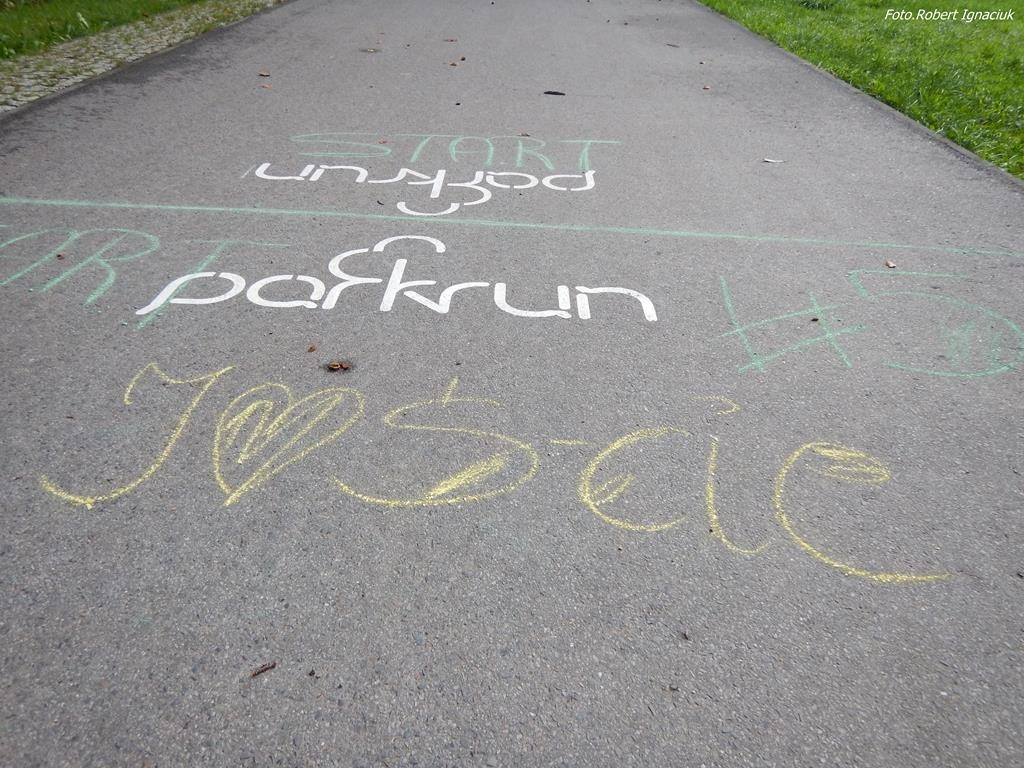 Foto.Robert Ignaciuk
START
parkrun
START
parkrun
#5
I ♥ Ś-cie